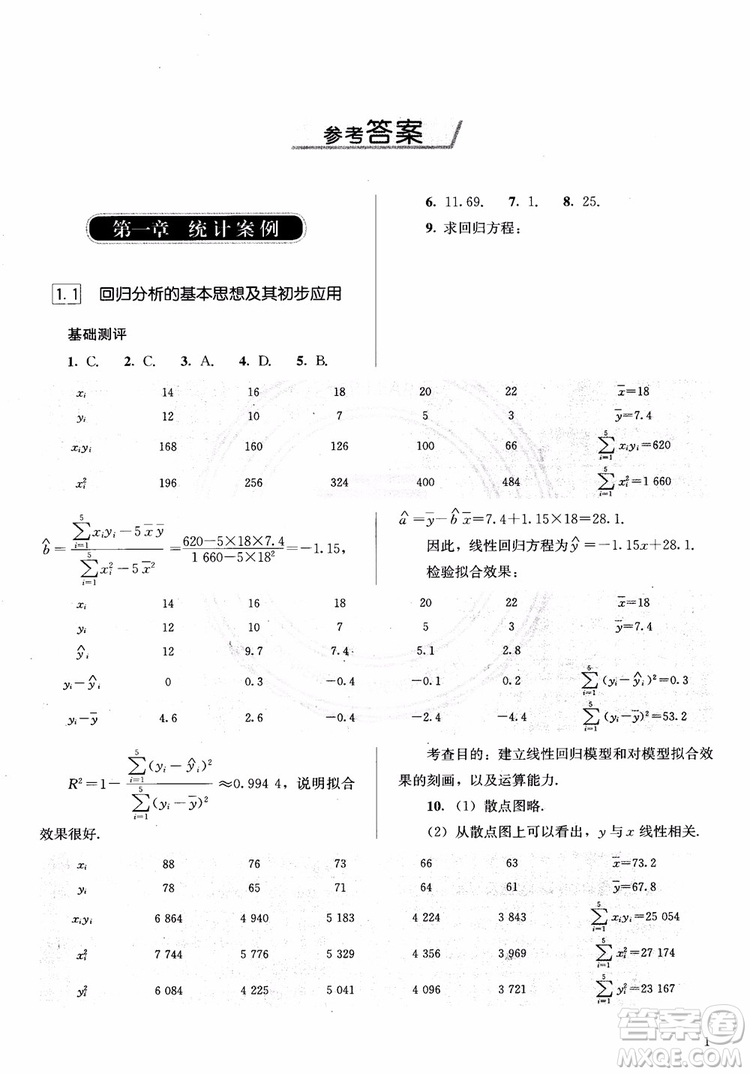 参考答案
第一章 统计案例
1.1 回归分析的基本思想及其初步应用
基础测评
1. C. 2. C. 3. A. 4. D. 5. B.
6. 11.69. 7. 1. 8. 25.
9. 求回归方程:
xᵢ 14 16 18 20 22 x̄=18
yᵢ 12 10 7 5 3 ȳ=7.4
xᵢyᵢ 168 160 126 100 66 ∑(i=1→5) xᵢyᵢ=620
xᵢ² 196 256 324 400 484 ∑(i=1→5) xᵢ²=1 660
b̂ = (∑(i=1→5) xᵢyᵢ−5 x̄ ȳ)/(∑(i=1→5) xᵢ²−5 x̄²) = (620−5×18×7.4)/(1 660−5×18²) =−1.15,
â=ȳ−b̂ x̄=7.4+1.15×18=28.1.
因此,线性回归方程为ŷ=−1.15x+28.1.
检验拟合效果:
xᵢ 14 16 18 20 22 x̄=18
yᵢ 12 10 7 5 3 ȳ=7.4
ŷᵢ 12 9.7 7.4 5.1 2.8
yᵢ−ŷᵢ 0 0.3 −0.4 −0.1 0.2 ∑(i=1→5) (yᵢ−ŷᵢ)²=0.3
yᵢ−ȳ 4.6 2.6 −0.4 −2.4 −4.4 ∑(i=1→5) (yᵢ−ȳ)²=53.2
R²=1− (∑(i=1→5) (yᵢ−ŷᵢ)²)/(∑(i=1→5) (yᵢ−ȳ)²) ≈0.994 4, 说明拟合
效果很好.
考查目的: 建立线性回归模型和对模型拟合效
果的刻画,以及运算能力.
10. (1) 散点图略.
(2) 从散点图上可以看出, y与x线性相关.
xᵢ 88 76 73 66 63 x̄=73.2
yᵢ 78 65 71 64 61 ȳ=67.8
xᵢyᵢ 6 864 4 940 5 183 4 224 3 843 ∑(i=1→5) xᵢyᵢ=25 054
xᵢ² 7 744 5 776 5 329 4 356 3 969 ∑(i=1→5) xᵢ²=27 174
yᵢ² 6 084 4 225 5 041 4 096 3 721 ∑(i=1→5) yᵢ²=23 167
答案卷
1